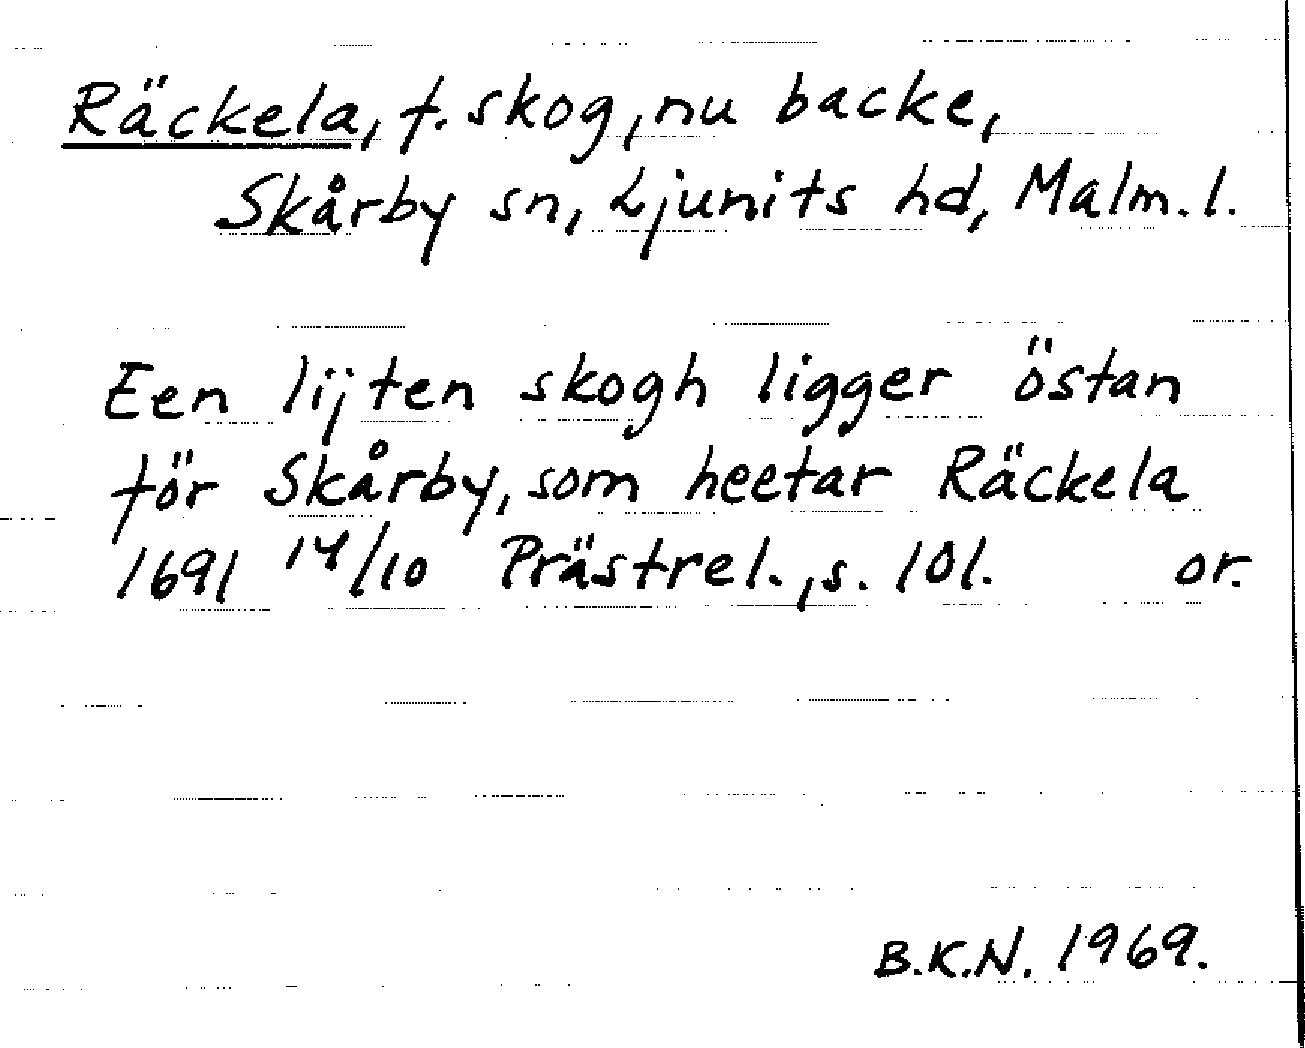 Räckela, f. skog, nu backe,
Skårby sn, Ljunits hd, Malm. l.
Een lijten skogh ligger östan
för Skårby, som heetar Räckela
1691 14/10 Prästrel., s. 101. or.
B.K.N. 1969.